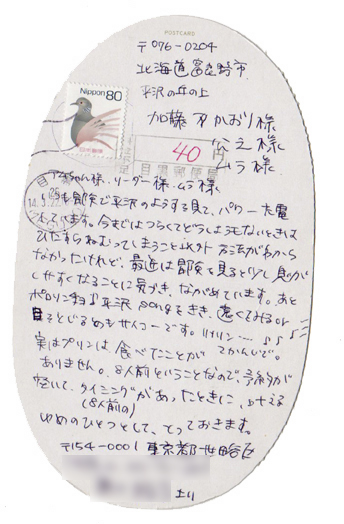 POSTCARD
〒076-0204
北海道富良野市
平沢の丘の上
Nippon 80
加藤 かおり様
公之様
ムラ様
40円
目黒郵便局
様、リーダー様、ムラ様
平沢のようすを見て、パワー充電
されています。今まではつらくてどうしようもないときは
ひたすらねむってしまうこと以外方法がわから
なかったけれど、最近は 見ると少し息が
しやすくなることに気づき、ながめています。あと
ポロリンチョ♪平沢 songをきき、遠くでみるor
目をとじるのもサイコーです。リリリン…♪♪♪
てかんじで。
実はプリンは、食べてことが
ありません。8人前ということなので、予約が
怪いて、タイミングがあったときに、叶える
(8人前の)
ゆめのひとつとして、とっておきます。
〒154-0001 東京都世田谷区
より